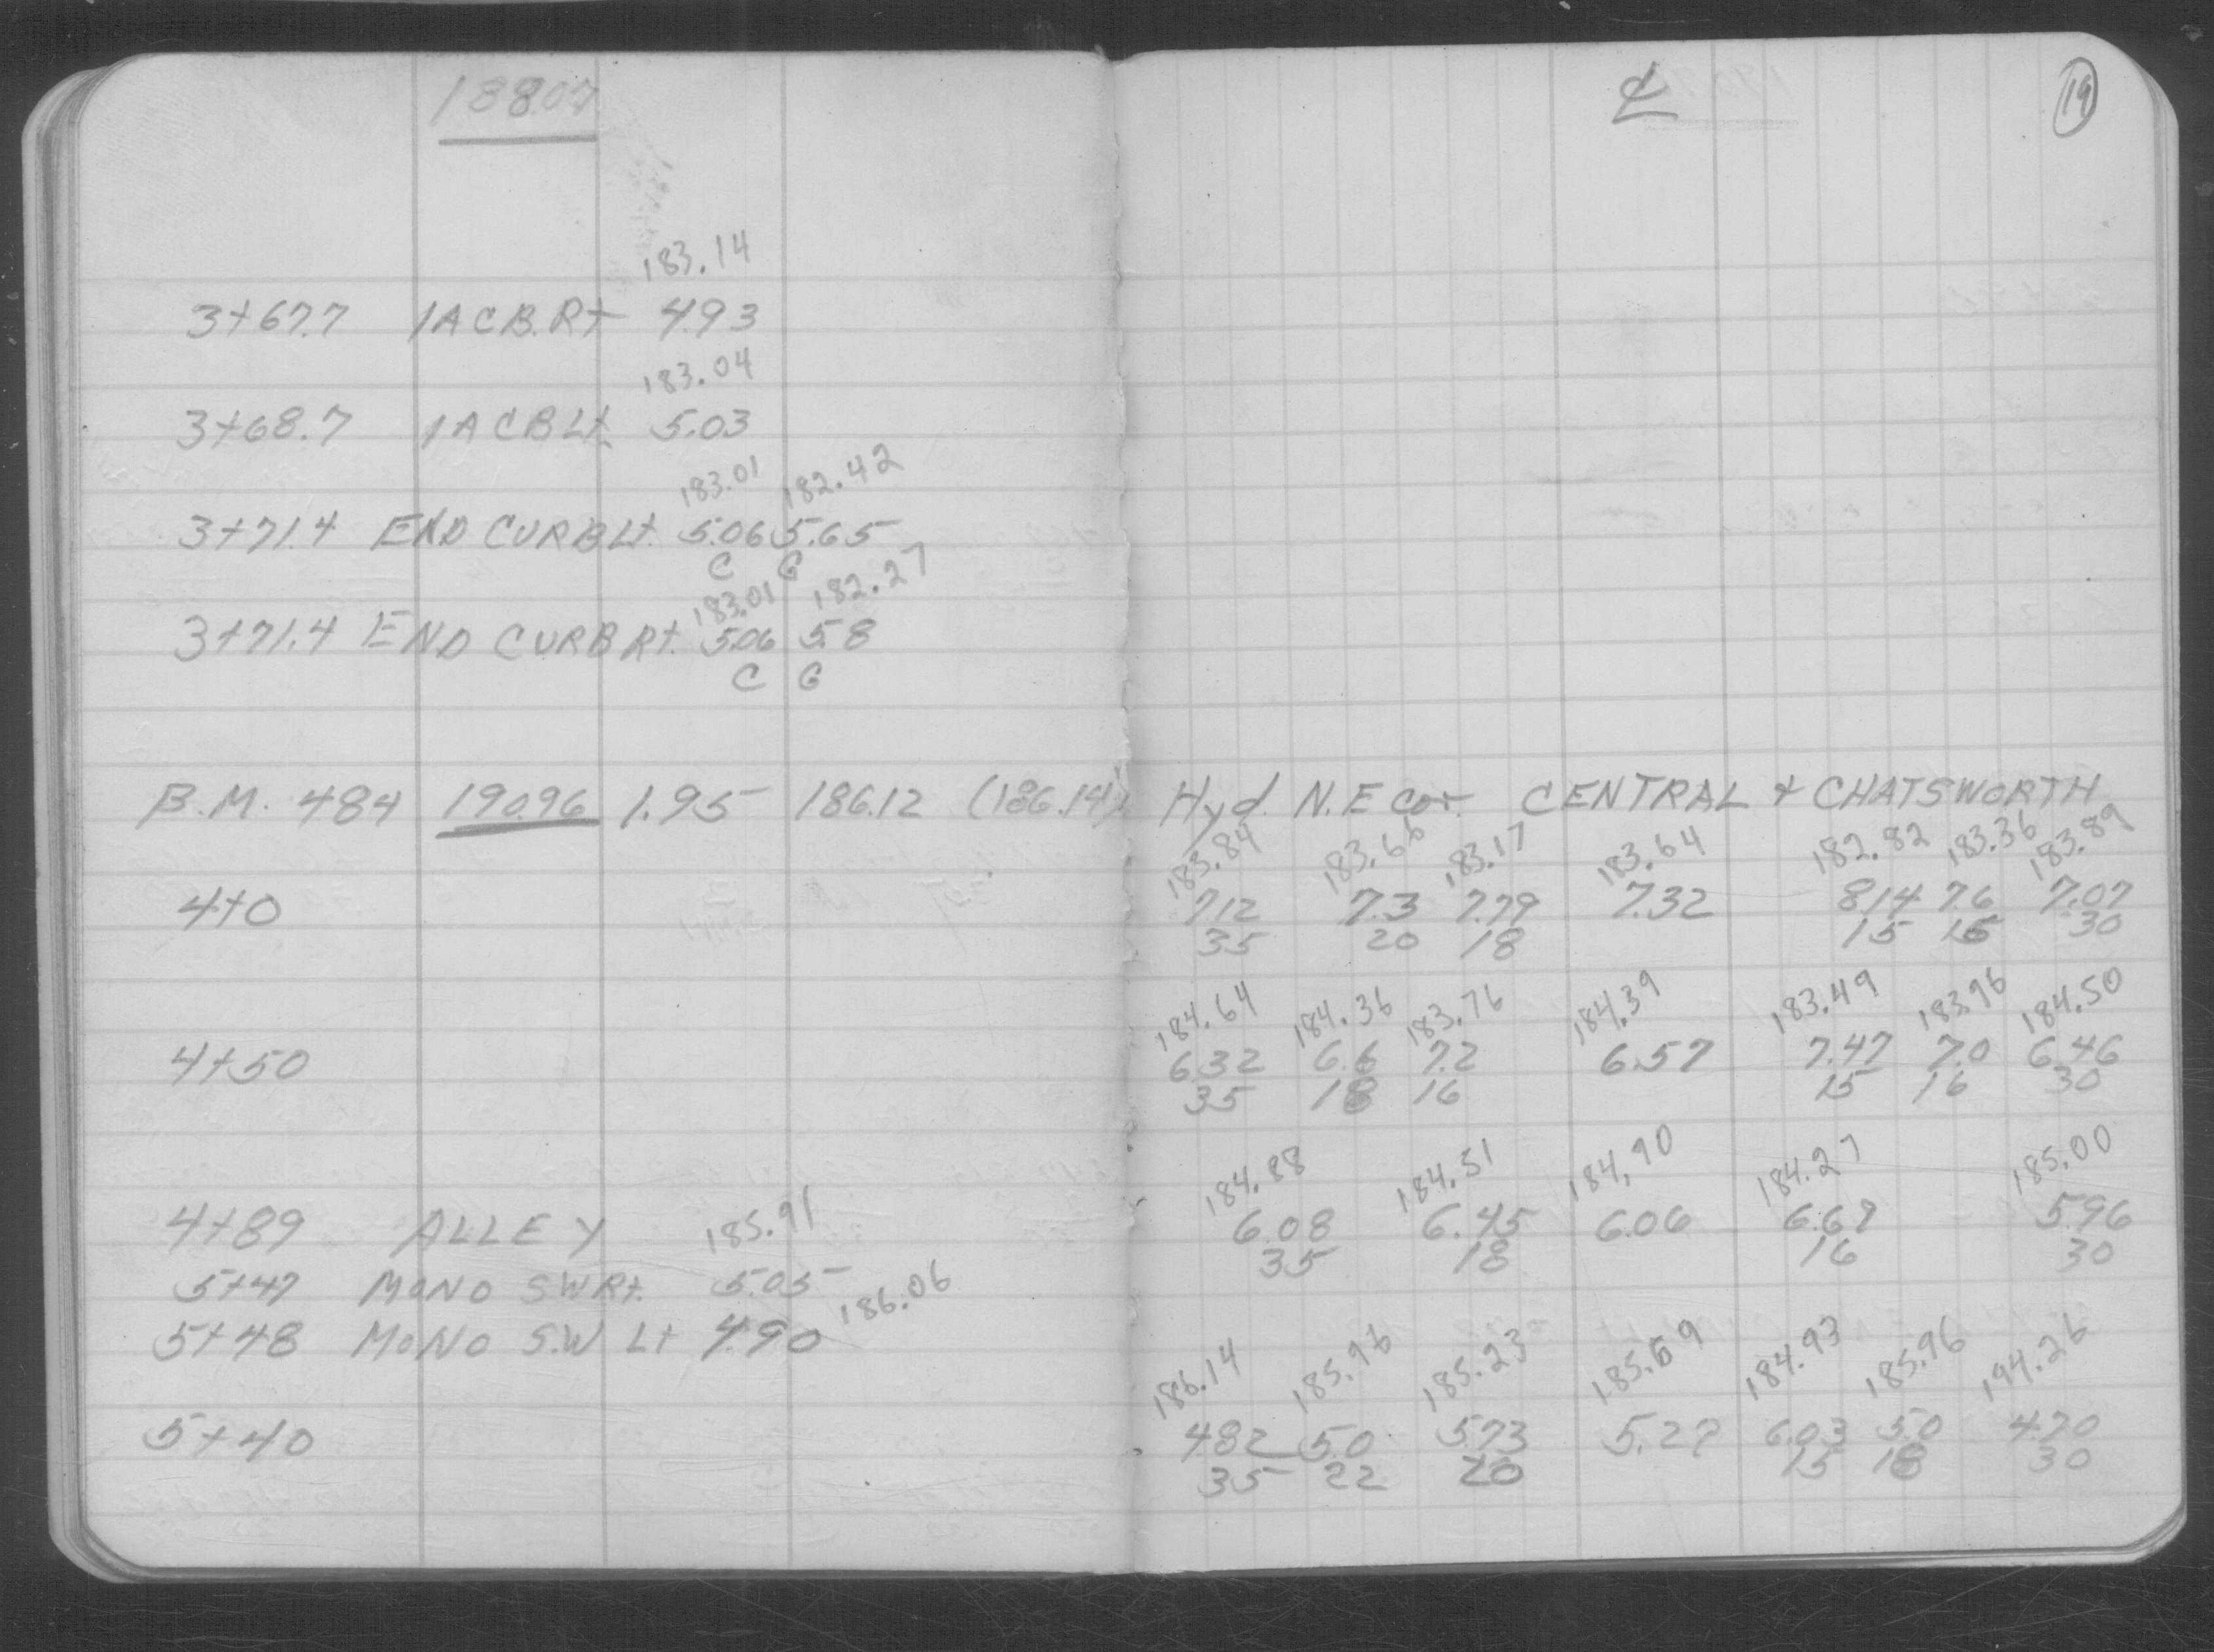 188.07
183.14
3+67.7 1A C.B. Rt 4.93
183.04
3+68.7 1A CB Lt 5.03
183.01 182.42
3+71.4 END CURB Lt. 5.06 5.65
C G
183.01 182.27
3+71.4 END CURB Rt. 5.06 5.8
C G
B.M. 484 190.96 1.95 186.12 (186.14)
4+0
4+50
4+89 ALLEY 185.91
5+47 MONO SW Rt. 5.05
186.06
5+48 MONO S.W Lt 4.90
5+40
℄ 19
Hyd. N.E cor. CENTRAL + CHATSWORTH
183.84 183.66 183.17 183.64 182.82 183.36 183.89
7.12 7.3 7.79 7.32 8.14 7.6 7.07
35 20 18 15 16 30
184.64 184.36 183.76 184.39 183.49 183.96 184.50
6.32 6.6 7.2 6.57 7.47 7.0 6.46
35 18 16 15 16 30
184.88 184.51 184.90 184.27 185.00
6.08 6.45 6.06 6.69 5.96
35 18 16 30
186.14 185.96 185.23 185.69 184.93 185.96 194.26
4.82 5.0 5.73 5.27 6.03 5.0 4.70
35 22 20 15 18 30